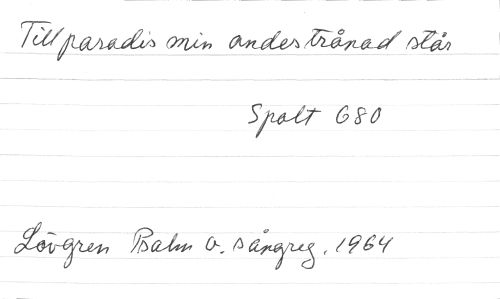 Till paradis min andes trånad står
Spalt 680
Lövgren Psalm o. sångreg. 1964